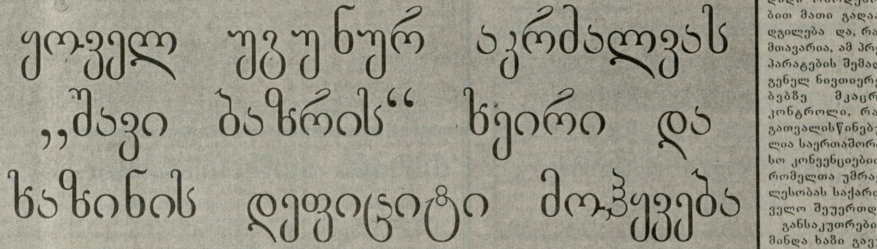 ყოველ უგუნურ აკრძალვას
„შავი ბაზრის“ ხეირი და
ხაზინის დეფიციტი მოჰყვება
ბით მათი გადაა
დგილება და, რა
მთავარია, ამ პრე
პარატების შემად
გენელ ნივთიერე
ბებზე მკაცრ
კონტროლი, რა
გათვალისწინებუ
ლია საერთაშორი
სო კონვენციებით
რომელთა უმრავ
ლესობას საქართ
ველო შეუერთდ
განსაკუთრები
მინდა ხაზი გავუ